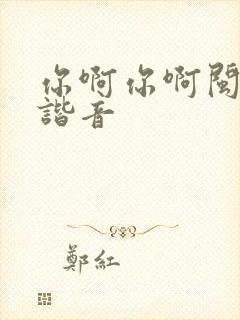 你啊你啊闽
諧音
鄭紅